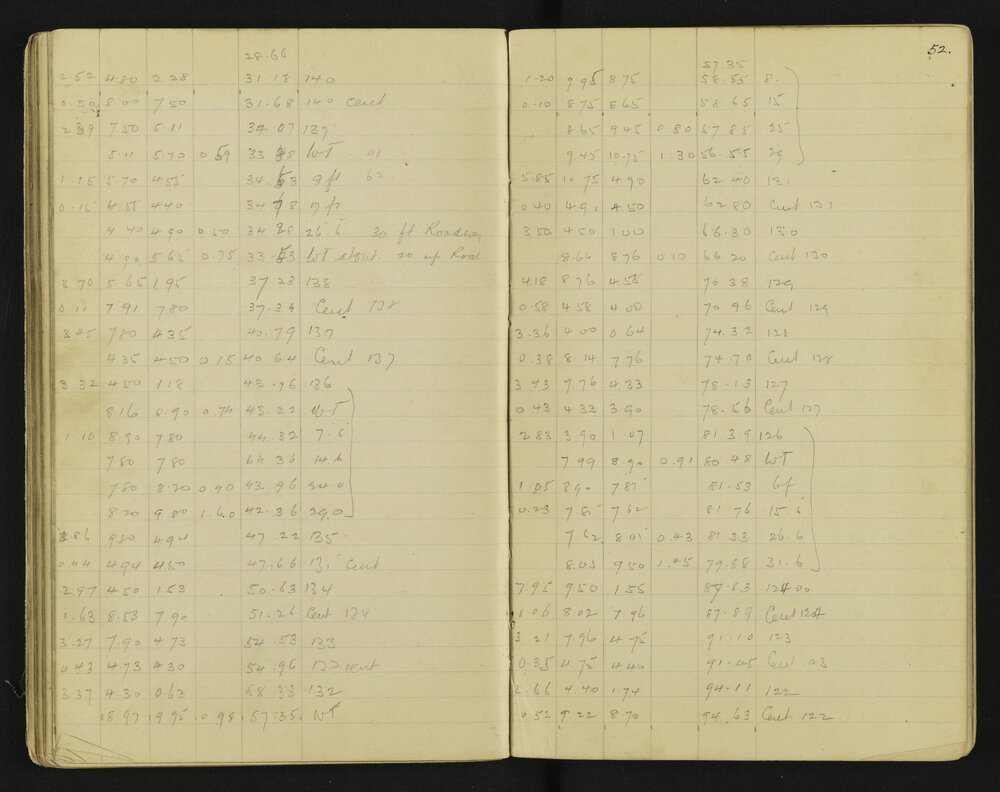 28.66
2.52 4.80 2.28 31.18 140
0.50 8.00 7.50 31.68 140 cent
2.39 7.50 5.11 34.07 139
5.11 5.70 0.59 33 8 WT
1.15 5.70 4.55 34.63 9 ft 62
0.15 4.55 4.40 34 78 17 ft
4.40 4.90 0.50 34 28 26.6 30 ft Roadway
4.90 5.65 0.75 33.53 WT stout. 20 up Road
3.70 5.65 1.95 37 23 138
0.11 7.91 7.80 37.34 Cent 138
3.45 7.80 4.35 40.79 137
4.35 4.50 0.15 40.64 Cent 137
3.32 4.50 1.18 43.96 136
8.16 8.90 0.74 43.22 WT
1.10 8.90 7.80 44.32 7.6
7.80 7.80 44 36 14.6
7.80 8.20 0.40 43.96 24.0
8.20 9.80 1.60 42.36 29.0
4.86 9.80 4.94 47.22 135
0.44 4.94 4.50 47.66 135 cent
2.97 4.50 1.53 50.63 134
0.63 8.53 7.90 51.26 Cent 134
3.27 7.90 4.73 54.53 133
0.43 4.73 4.30 54.96 133 cent
3.37 4.30 0.63 58.33 132
18.97 19.95 0.98 57.35. WT
52.
57.35
1.20 9.95 8.75 58.55 8.
0.10 8.75 8.65 58.65 15
8.65 9.45 0.80 57.85 25
9.45 10.75 1.30 56.55 29
5.85 10.75 4.90 62.40 131
0.40 4.90 4.50 62.80 Cent 131
3.50 4.50 1.00 66.30 130
8.66 8.76 0.10 66.20 Cent 130
4.18 8.76 4.58 70.38 129
0.58 4.58 4.00 70.96 Cent 129
3.36 4.00 0.64 74.32 128
0.38 8.14 7.76 74.70 Cent 128
3.43 7.76 4.33 78.13 127
0.43 4.33 3.90 78.56 Cent 127
2.83 3.90 1.07 81.39 126
7.99 8.90 0.91 80.48 WT
1.05 8.90 7.85 81.53 6f
0.23 7.85 7.62 81.76 15.6
7.62 8.05 0.43 81.33 26.6
8.05 9.50 1.45 79.88 31.6
7.95 9.50 1.55 87.83 124.00
0.06 8.02 7.96 87.89 Cent 124
3.21 7.96 4.75 91.10 123
0.35 4.75 4.40 91.45 Cent 123
2.66 4.40 1.74 94.11 122
0.52 9.22 8.70 94.63 Cent. 122